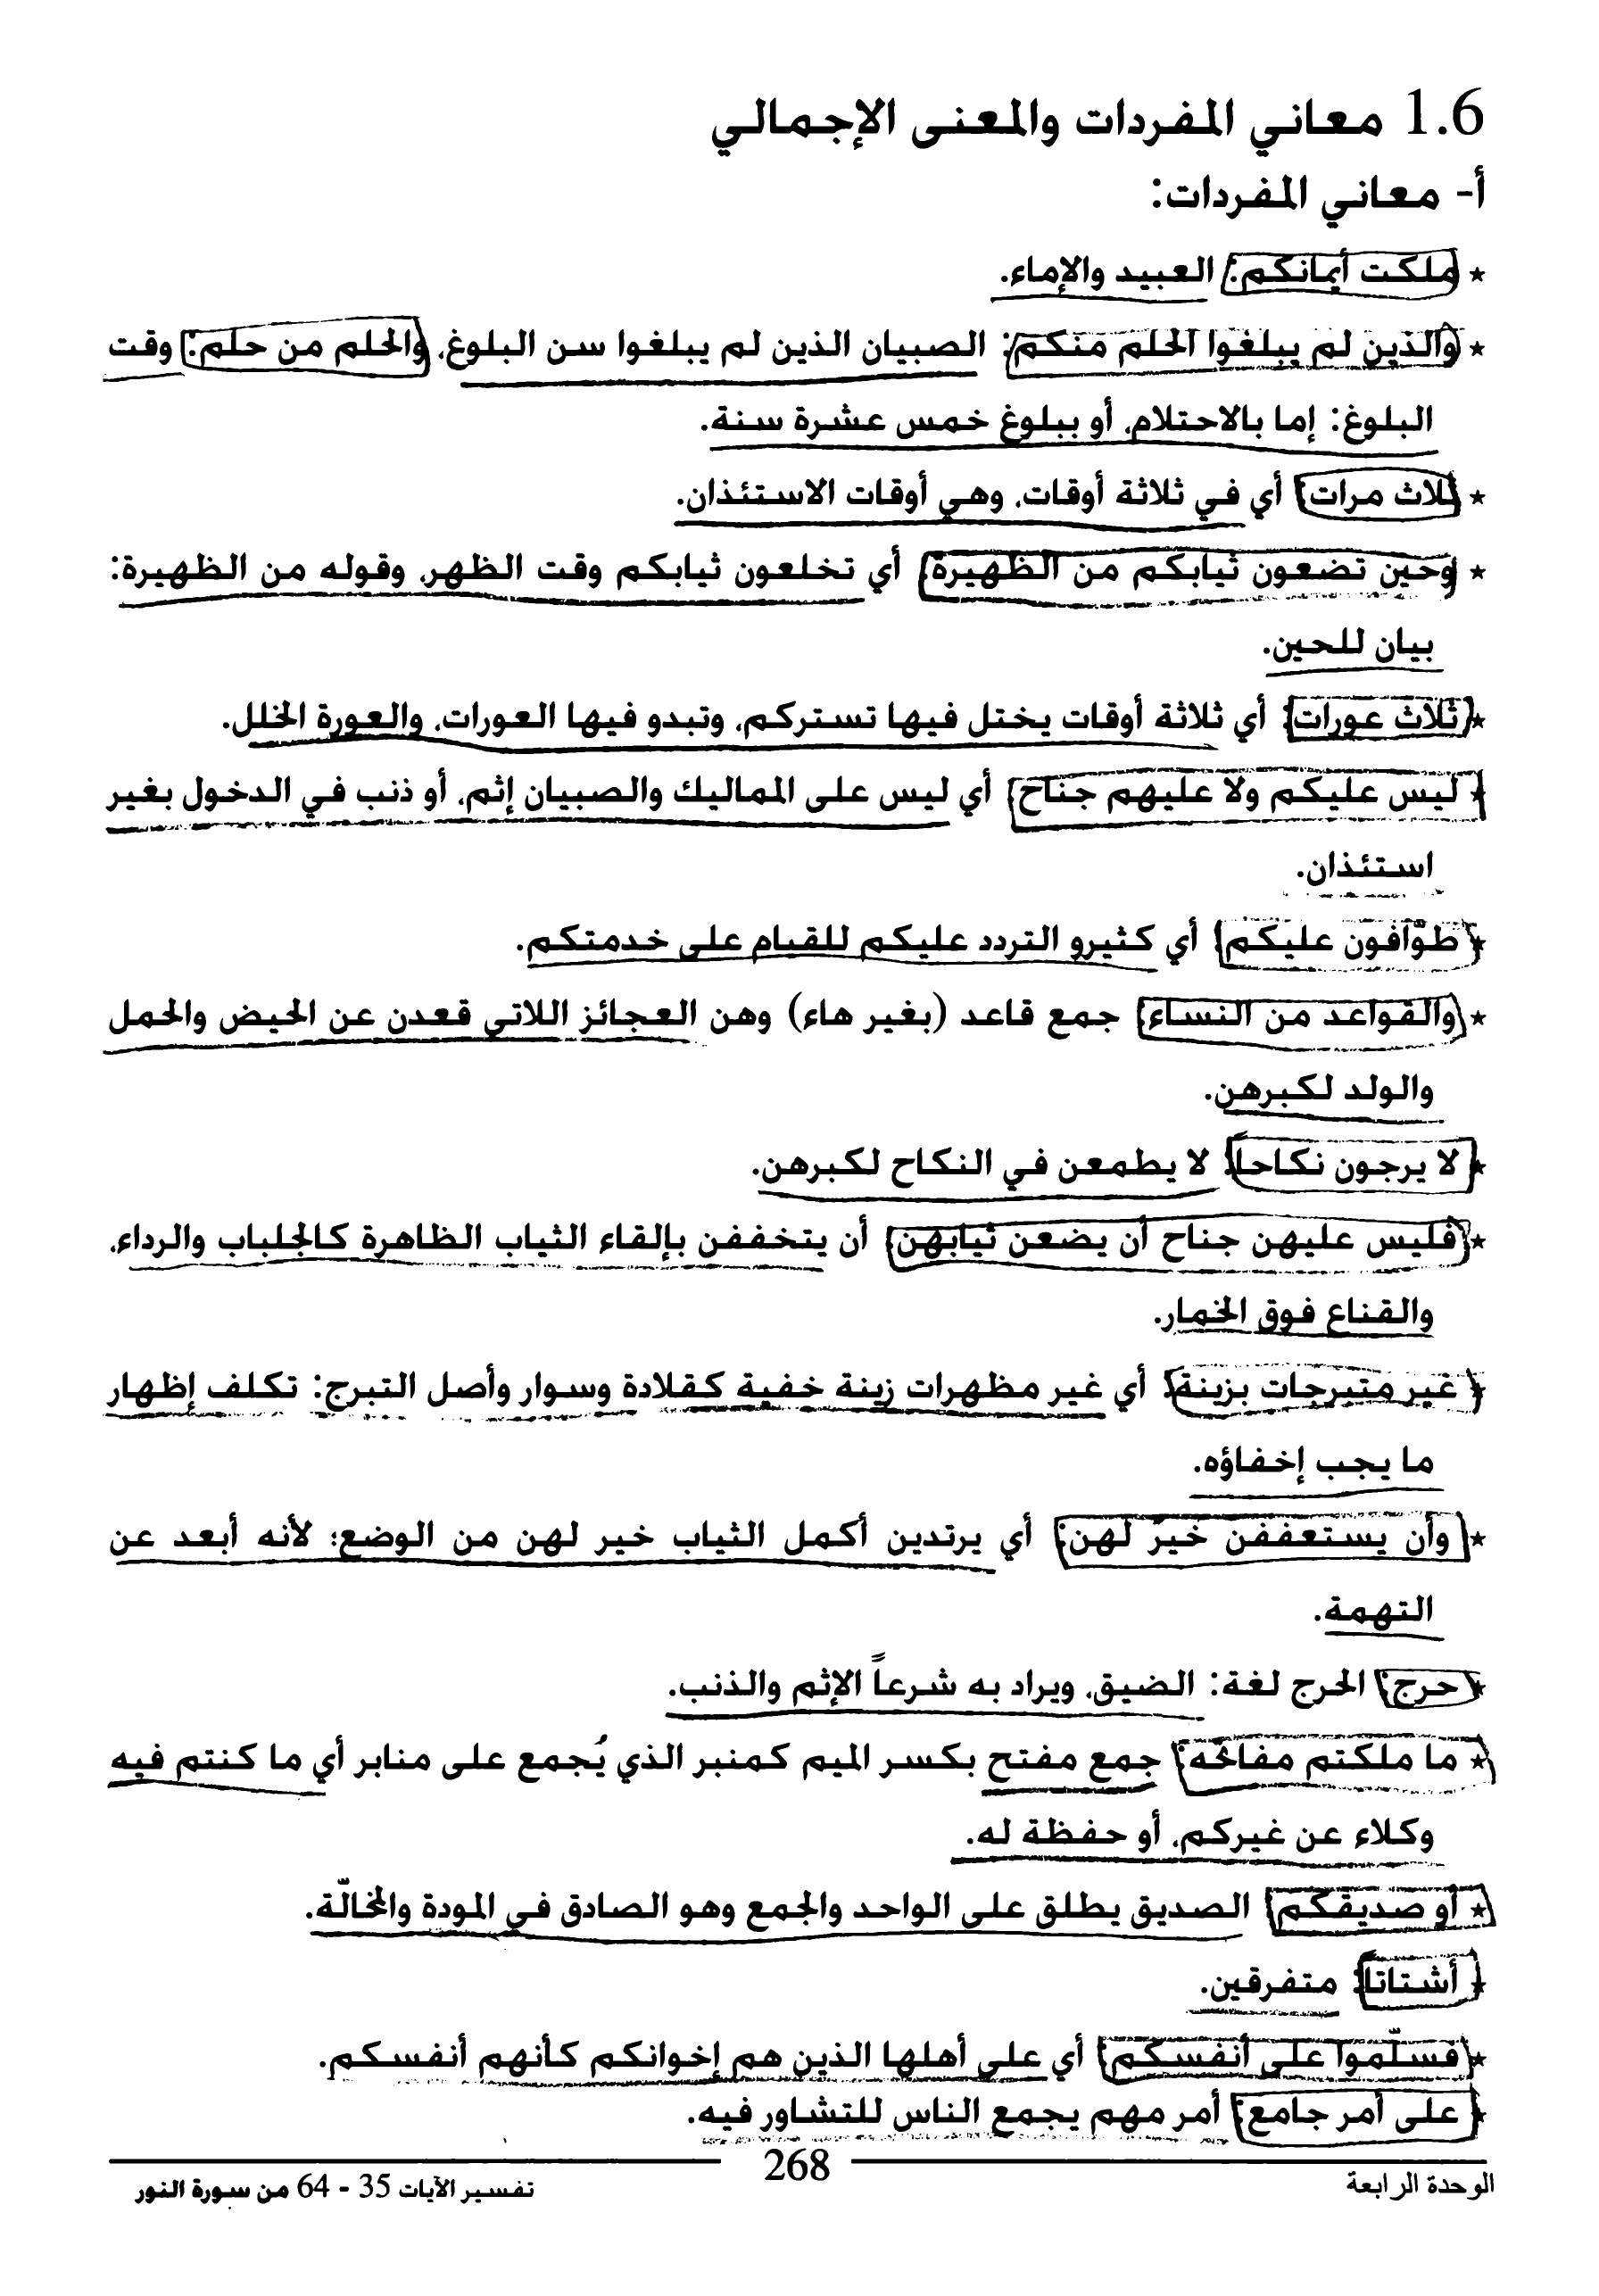 1.6 معاني المفردات والمعنى الإجمالي
أ- معاني المفردات:
* ملكت أيمانكم: العبيد والإماء.
* والذين لم يبلغوا الحلم منكم: الصبيان الذين لم يبلغوا سن البلوغ، والحلم من حلم: وقت
البلوغ: إما بالاحتلام، أو ببلوغ خمس عشرة سنة.
* ثلاث مرات: أي في ثلاثة أوقات، وهي أوقات الاستئذان.
* وحين تضعون ثيابكم من الظهيرة: أي تخلعون ثيابكم وقت الظهر، وقوله من الظهيرة:
بيان للحين.
* ثلاث عورات: أي ثلاثة أوقات يختل فيها تستركم، وتبدو فيها العورات، والعورة الخلل.
* ليس عليكم ولا عليهم جناح: أي ليس على المماليك والصبيان إثم، أو ذنب في الدخول بغير
استئذان.
* طوّافون عليكم: أي كثيرو التردد عليكم للقيام على خدمتكم.
* والقواعد من النساء: جمع قاعد (بغير هاء) وهن العجائز اللاتي قعدن عن الحيض والحمل
والولد لكبرهن.
* لا يرجون نكاحاً: لا يطمعن في النكاح لكبرهن.
* فليس عليهن جناح أن يضعن ثيابهن: أن يتخففن بإلقاء الثياب الظاهرة كالجلباب والرداء،
والقناع فوق الخمار.
* غير متبرجات بزينة: أي غير مظهرات زينة خفية كقلادة وسوار وأصل التبرج: تكلف إظهار
ما يجب إخفاؤه.
* وأن يستعففن خيرٌ لهن: أي يرتدين أكمل الثياب خير لهن من الوضع؛ لأنه أبعد عن
التهمة.
* حرج: الحرج لغة: الضيق، ويراد به شرعاً الإثم والذنب.
* ما ملكتم مفاتحه: جمع مفتح بكسر الميم كمنبر الذي يُجمع على منابر أي ما كنتم فيه
وكلاء عن غيركم، أو حفظة له.
* أو صديقكم: الصديق يطلق على الواحد والجمع وهو الصادق في المودة والمخالّة.
* أشتاتا: متفرقين.
* فسلّموا على أنفسكم: أي على أهلها الذين هم إخوانكم كأنهم أنفسكم.
* على أمر جامع: أمر مهم يجمع الناس للتشاور فيه.
268
الوحدة الرابعة
تفسير الآيات 35 - 64 من سورة النور